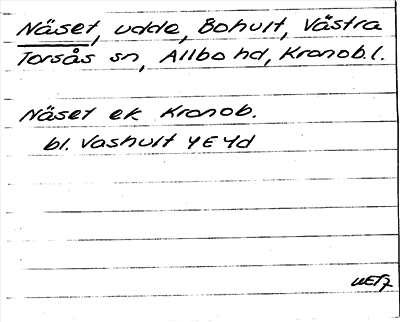 Näset, udde, Bohult, Västra
Torsås sn, Allbo hd, Kronob.l.
Näset ek Kronob.
bl. Vashult 4E4d